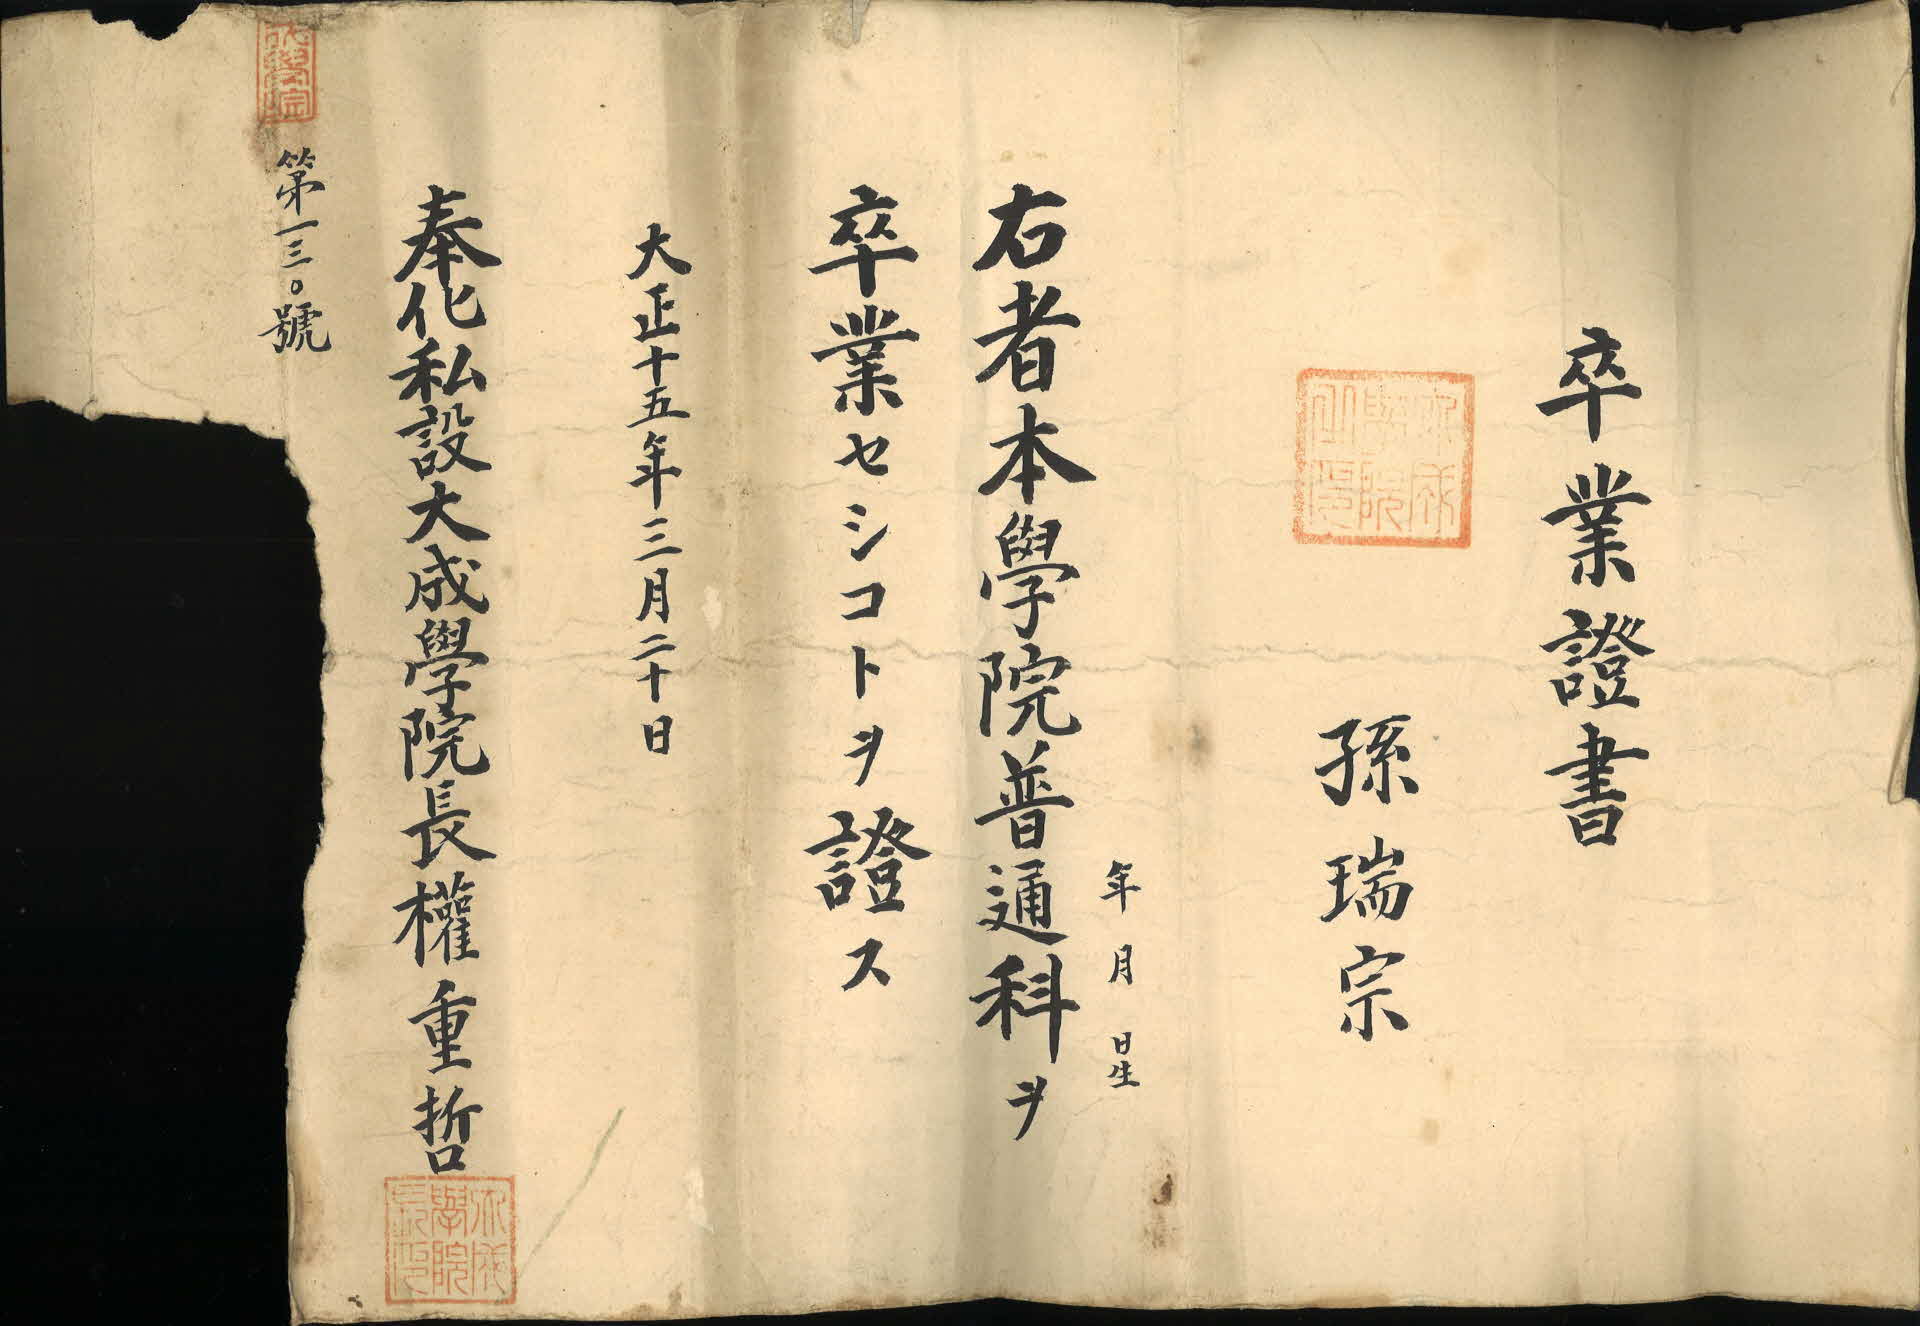 卒業證書
孫瑞宗
年月日生
右者本學院普通科ヲ
卒業セシコトヲ證ス
大正十五年三月二十日
奉化私設大成學院長權重哲
第一三〇號
大成學院之印
大成學院長印